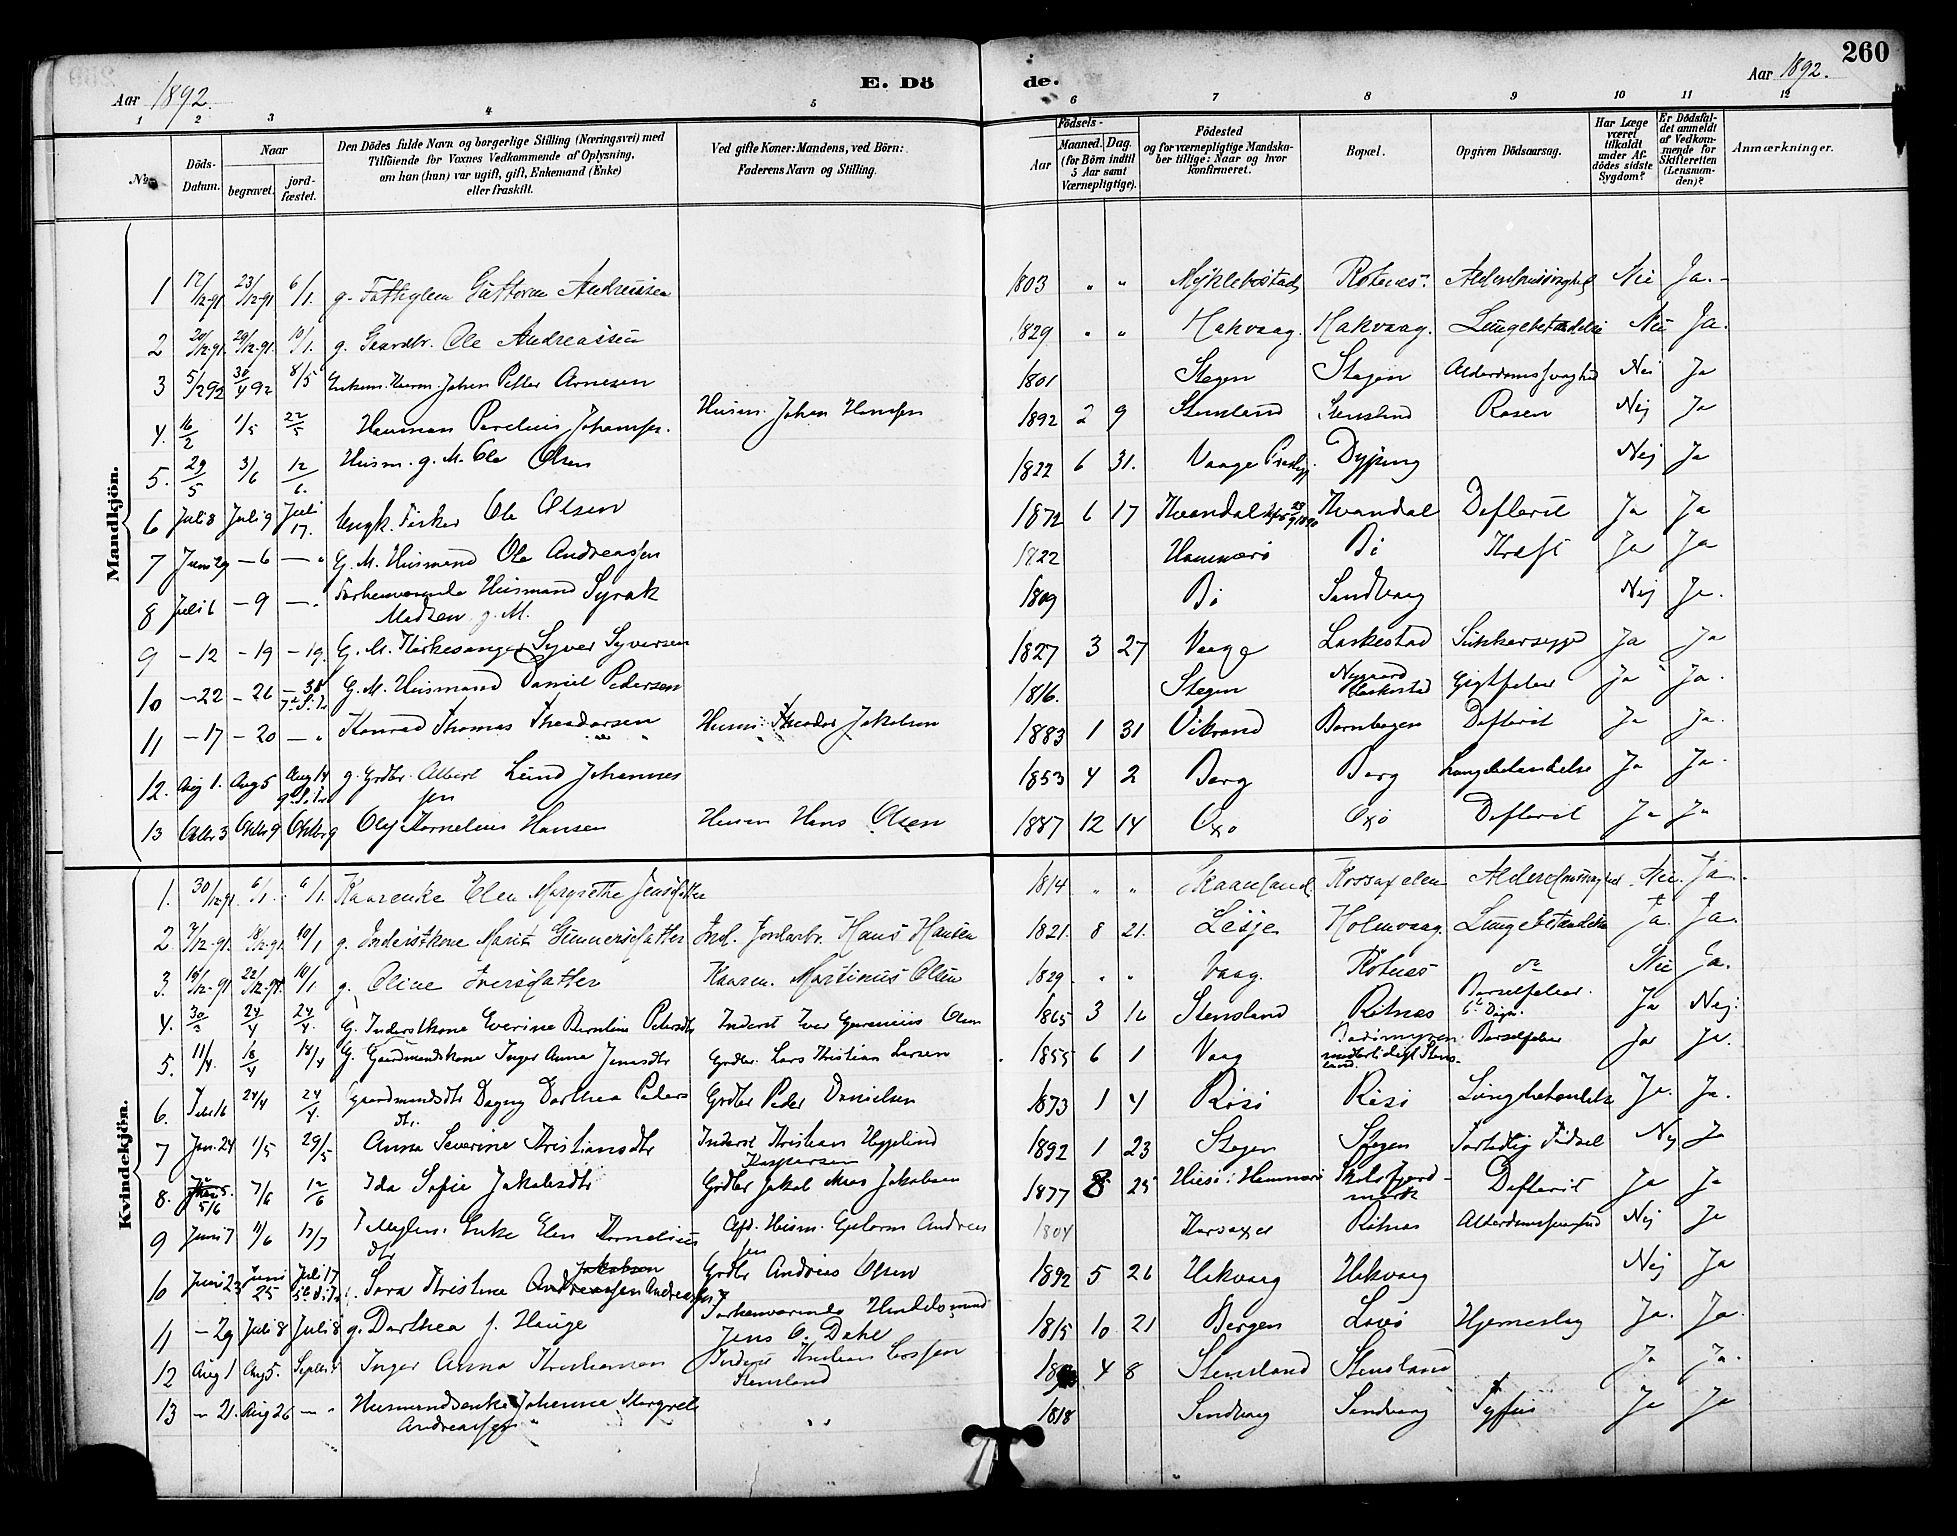 260
Aar 1892.
E. Dö
de.
Aar 1892.
1 2 3 4 5 6 7 8 9 10 11 12
No.
Döds-Datum.
Naar
begravet.
jord-fæstet.
Den Dödes fulde Navn og borgerlige Stilling (Næringsvei) med
Tilföiende for Voxnes Vedkommende af Oplysning,
om han (hun) var ugift, gift, Enkemand (Enke)
eller fraskilt.
Ved gifte Koner: Mandens, ved Börn:
Faderens Navn og Stilling.
Födsels-
Aar
Maaned. Dag.
(for Börn indtil
5 Aar samt
Værnepligtige).
Födested
og for værnepligtige Mandska-
ber tillige: Naar og hvor
konfirmeret.
Bopæl.
Opgiven Dödsaarsag.
Har Læge
været
tilkaldt
under Af-
dödes sidste
Sygdom?
Er Dödsfal-
det anmeldt
af Vedkom-
mende for
Skifteretten
(Lensman-
den)?
Anmærkninger.
Mandkjön.
1 17/12-91 23/12-91 6/1. g. Guttorm Andreassen 1803 " " Myklebostad Rotnæs. Nei Ja.
2 20/12-91. 29/12-91. 10/1. g. Gaardbr. Ole Andreassen 1829 " " Hakvaag. Hakvaag. Lungebetændelse Nei Ja.
3 5/2 92 30/4 92 8/5 Enkem. Husm. Johan Petter Arnesen 1801 Stegen Stegen Alderdomssvaghed Nei Ja
4. 16/2 1/5 22/5 Johansen. Husm. Johan Hansen 1892 2 9 Stensland Stensland Rosen Nej Ja
5. 29/5 3/6 12/6. Husm. g. M. Ole Olsen 1822 6 31. Vaage Nej Ja
6 Juli 8 Juli 9 Juli 17. Ungk. Fisker Ole Olsen 1872 6 17 Kvandal Kvandal Difterit Ja Ja
7 Juni 29 — 6 — " G. M. Husmand Ole Andreassen 1822 Hammerö Bö Kræft Ja Ja
8 Juli 6 — 9 — " Forhenværende Husmand Syrak
Madsen g. M. 1809 Bö Sandvaag Nej Ja.
9 — 12 — 19 — 19. G. M. Kirkesanger Syver Syversen 1827 3 27 Vaage Laskestad Sukkersyge Ja Ja
10 — 22 — 26 — 30 G. M. Husmand Daniel Pedersen 1816. Stegen Nygaard
Laskestad Gigtfeber Ja Ja.
11 — 17 — 20 — " Konrad Thomas Theodorsen Husm. Theodor Jakobsen 1883 1 31 Difterit Ja Ja.
12. Aug 1. Aug 5 Aug 14 g. Grdbr. Albert Lund Johannes
sen 1853 4 2 Berg Berg Lungebetændelse Ja Ja.
13 Oktbr 3 Oktbr 9 Oktbr 9 Olaf Kornelius Hansen Husm Hans Olsen 1887 12 14 Oxö Oxö Difterit Ja Ja
Kvindekjön.
1. 30/12-91. 6/1. 6/1. Elen Margrethe Jensdatter 1814 " " Skaanland Alderdomssvaghed Nei. Ja.
2. 7/12-91. 18/12-91. 10/1 g. Inderstkone Marit Gunnersdatter Ind. Jordarbr. Hans Hansen 1821. 8 21. Lesje Holmvaag. Lungebetændelse Ja. Ja.
3. 10/12-91 22/12-91. 10/1 g. Oline Iversdatter Martinus Olsen 1829 " " Vaag. Rotnæs do Nei Ja.
4. 30/3 24/4 24/4. G. Inderstkone Everine Berntine Petersdtr Inderst Iver Olsen 1865 3 16 Stensland Rotnæs Barselfeber.
6te Døgn. Ja Nej.
5. 11/4. 16/4 18/4 G. Gaardmandskone Inger Anna Jonasdtr Grdbr. Lars Kristian Larsen 1855 6 1 Vaag Barselfeber Ja Ja.
6. Febr 16 24/4 24/4. Gaardmandsdtr Dagny Dorthea Peders
dtr. Grdbr Peder Danielsen 1873 1 4 Rösö Rösö Lungebetændelse Ja. Ja.
7 Jan. 24 1/5 29/5 Anna Severine Kristiansdtr Inderst Kristian Hyppelind
Kaspersen 1892 1 23 Stegen Stegen Fortidlig Födsel Nej Ja
8. 5/6 7/6 12/6 Ida Sofie Jakobsdtr Grdbr Jakob Jakobsen 1877 8 25 Difterit Ja Ja
9 Juni 7 11/6 13/7 Enke Elen Kornelius
dtr Afd. Husm. Gutorm Andreas
sen 1804 Rotnæs Alderdomssvaghed Nej Ja
10 Juni 23 Juni 25 Juli 17 Sara Kristine Jakobsen Andreassen Grdbr Andreas Olsen 1892 5 26 Hakvaag Hakvaag Nej Ja
11 — 29 Juli 8 Juli 8 g. Dorthea f. Hauge Forhenværende Handelsmand
Jens O. Dahl 1815 10 21 Bergen Hjerneslag Ja. Ja.
12 Aug 1 Aug 5. Inger Anna
Stensland 4 8 Stensland Stensland Ja Ja.
13 — 21. Aug 26 — " Husmandsenke Johanne Margret
Andreassen " " 1818 Sandvaag Sandvaag Tyfus Ja Ja